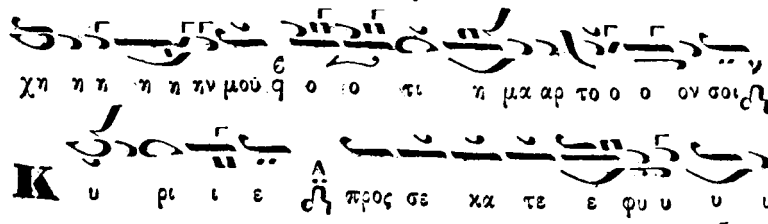 χη η η η η ην μου ο ο τι η μα αρ το ο ο ον σοι
Κ υ ρι ι ε προς σε κα τε ε φυ υ υ υ